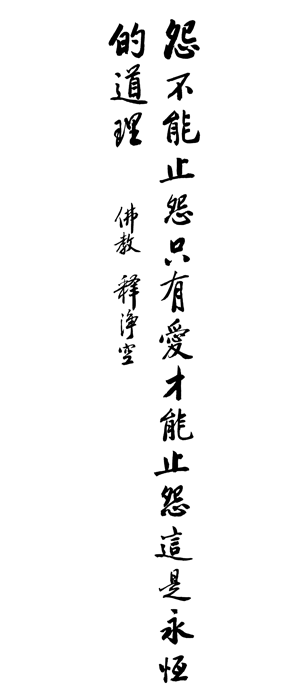 怨不能止怨只有愛才能止怨這是永恒
的道理
佛教 釋淨空